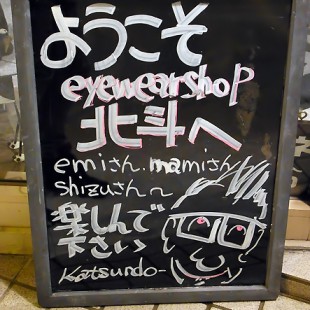 ようこそ
eyewearshop
北斗へ
emiさん.mamiさん
shizuさん〜
楽しんで
下さい
Katsundo-